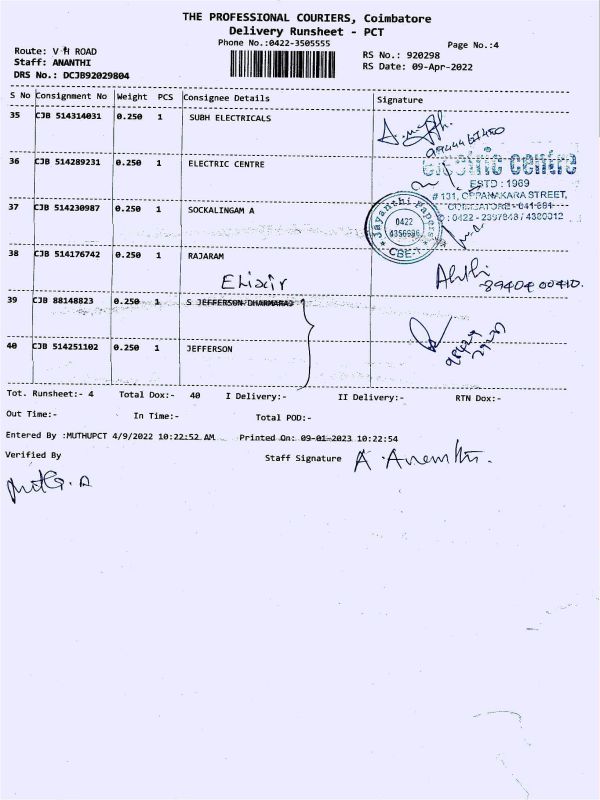 THE PROFESSIONAL COURIERS, Coimbatore
Delivery Runsheet - PCT
Phone No.:0422-3505555
Page No.:4
Route: V H ROAD
RS No.: 920298
Staff: ANANTHI
RS Date: 09-Apr-2022
DRS No.: DCJB92029804
S No Consignment No Weight PCS Consignee Details Signature
35 CJB 514314031 0.250 1 SUBH ELECTRICALS
36 CJB 514289231 0.250 1 ELECTRIC CENTRE
electric centre
ESTD : 1969
# 131, OPPANAKARA STREET,
COIMBATORE - 641 001
: 0422 - 2397848 / 4380312
37 CJB 514230987 0.250 1 SOCKALINGAM A
Jayanthi Papers
0422
CBE-1
38 CJB 514176742 0.250 1 RAJARAM
Elixir
89404 00410.
39 CJB 88148823 0.250 1 S JEFFERSON DHARMARAJ
40 CJB 514251102 0.250 1 JEFFERSON
Tot. Runsheet:- 4 Total Dox:- 40 I Delivery:- II Delivery:- RTN Dox:-
Out Time:- In Time:- Total POD:-
Entered By :MUTHUPCT 4/9/2022 10:22:52 AM Printed On: 09-01-2023 10:22:54
Verified By
Staff Signature A. Ananthi.